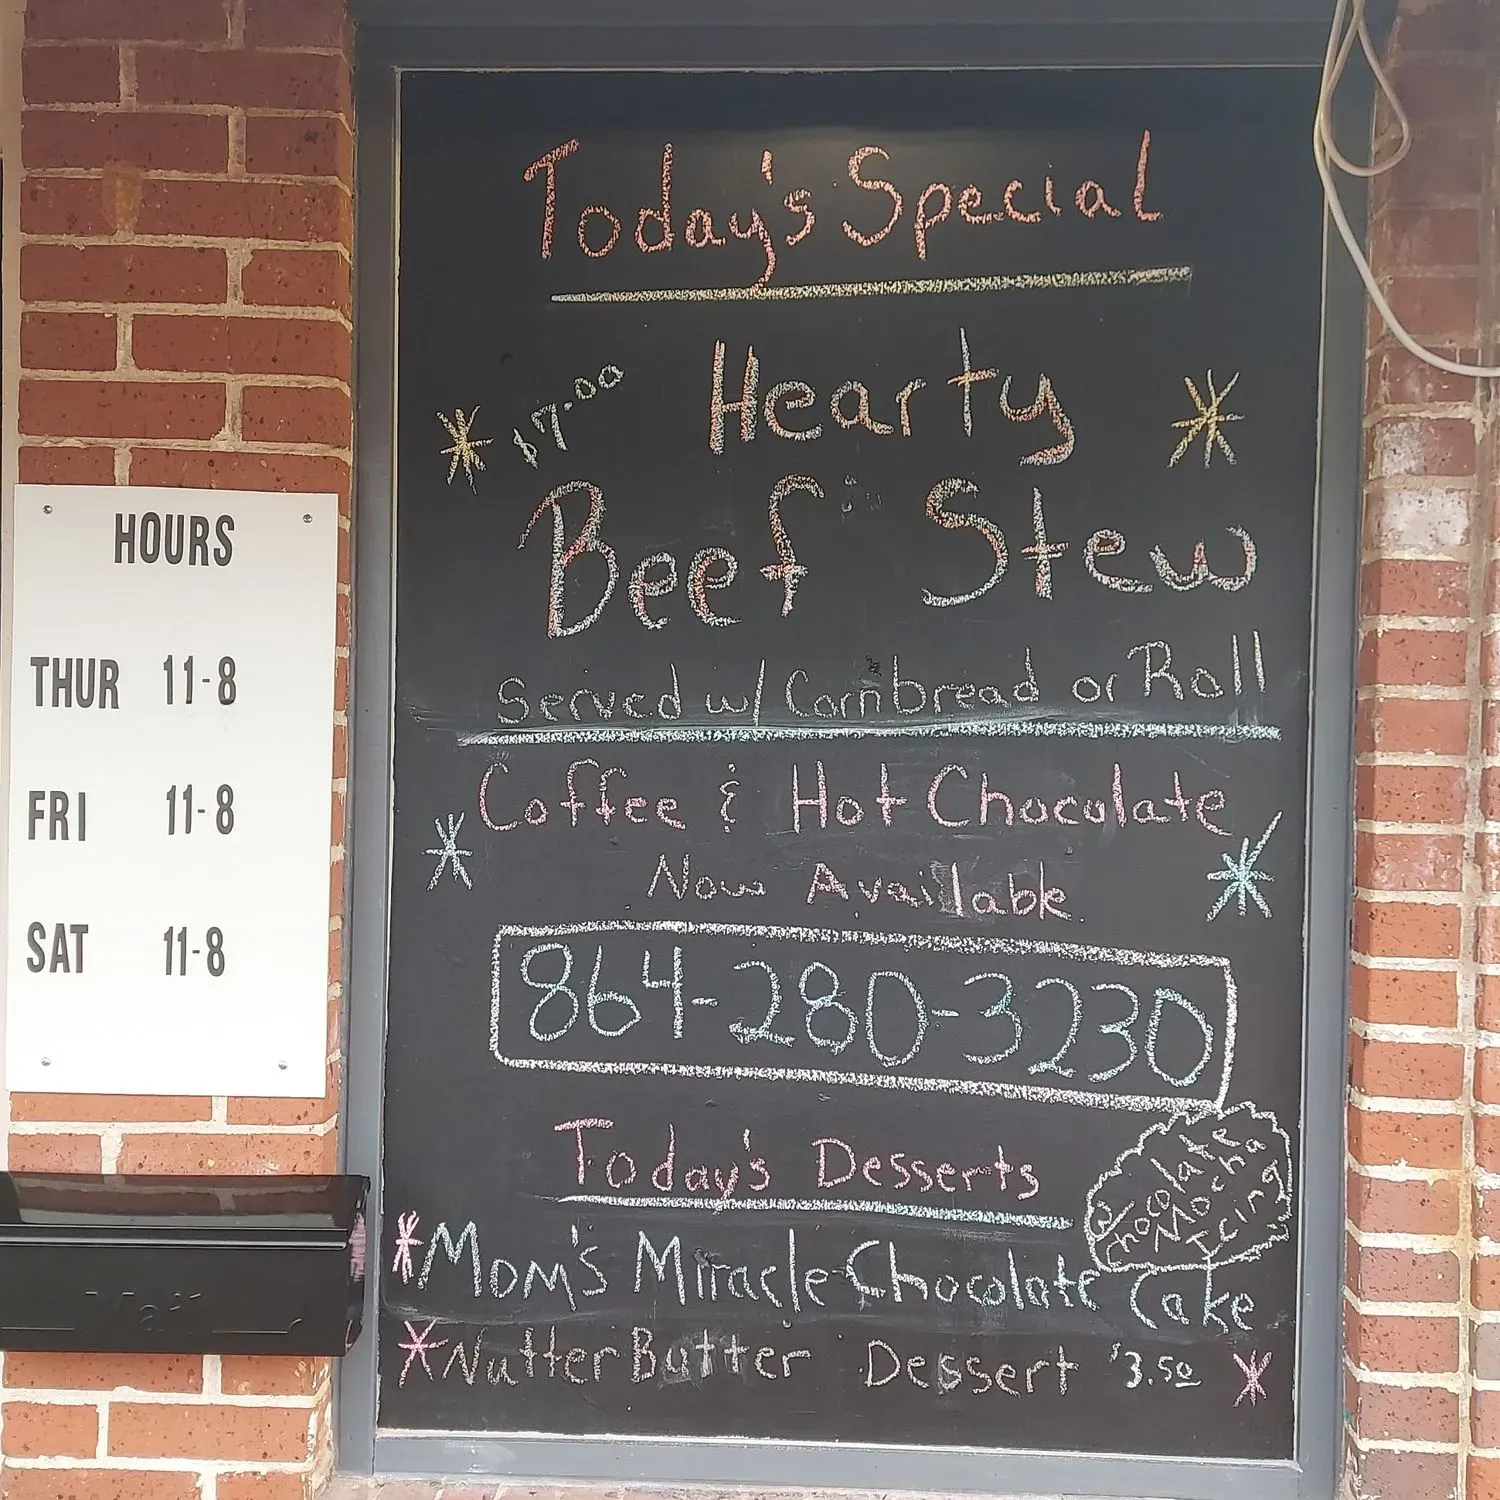 HOURS
THUR 11-8
FRI 11-8
SAT 11-8
Today's Special
$7.00
Hearty
Beef Stew
Served w/ Cornbread or Roll
Coffee & Hot Chocolate
Now Available
864-280-3230
Today's Desserts
Chocolate
Mocha
Icing
*Mom's Miracle Chocolate Cake
*Nutter Butter Dessert $3.50 *